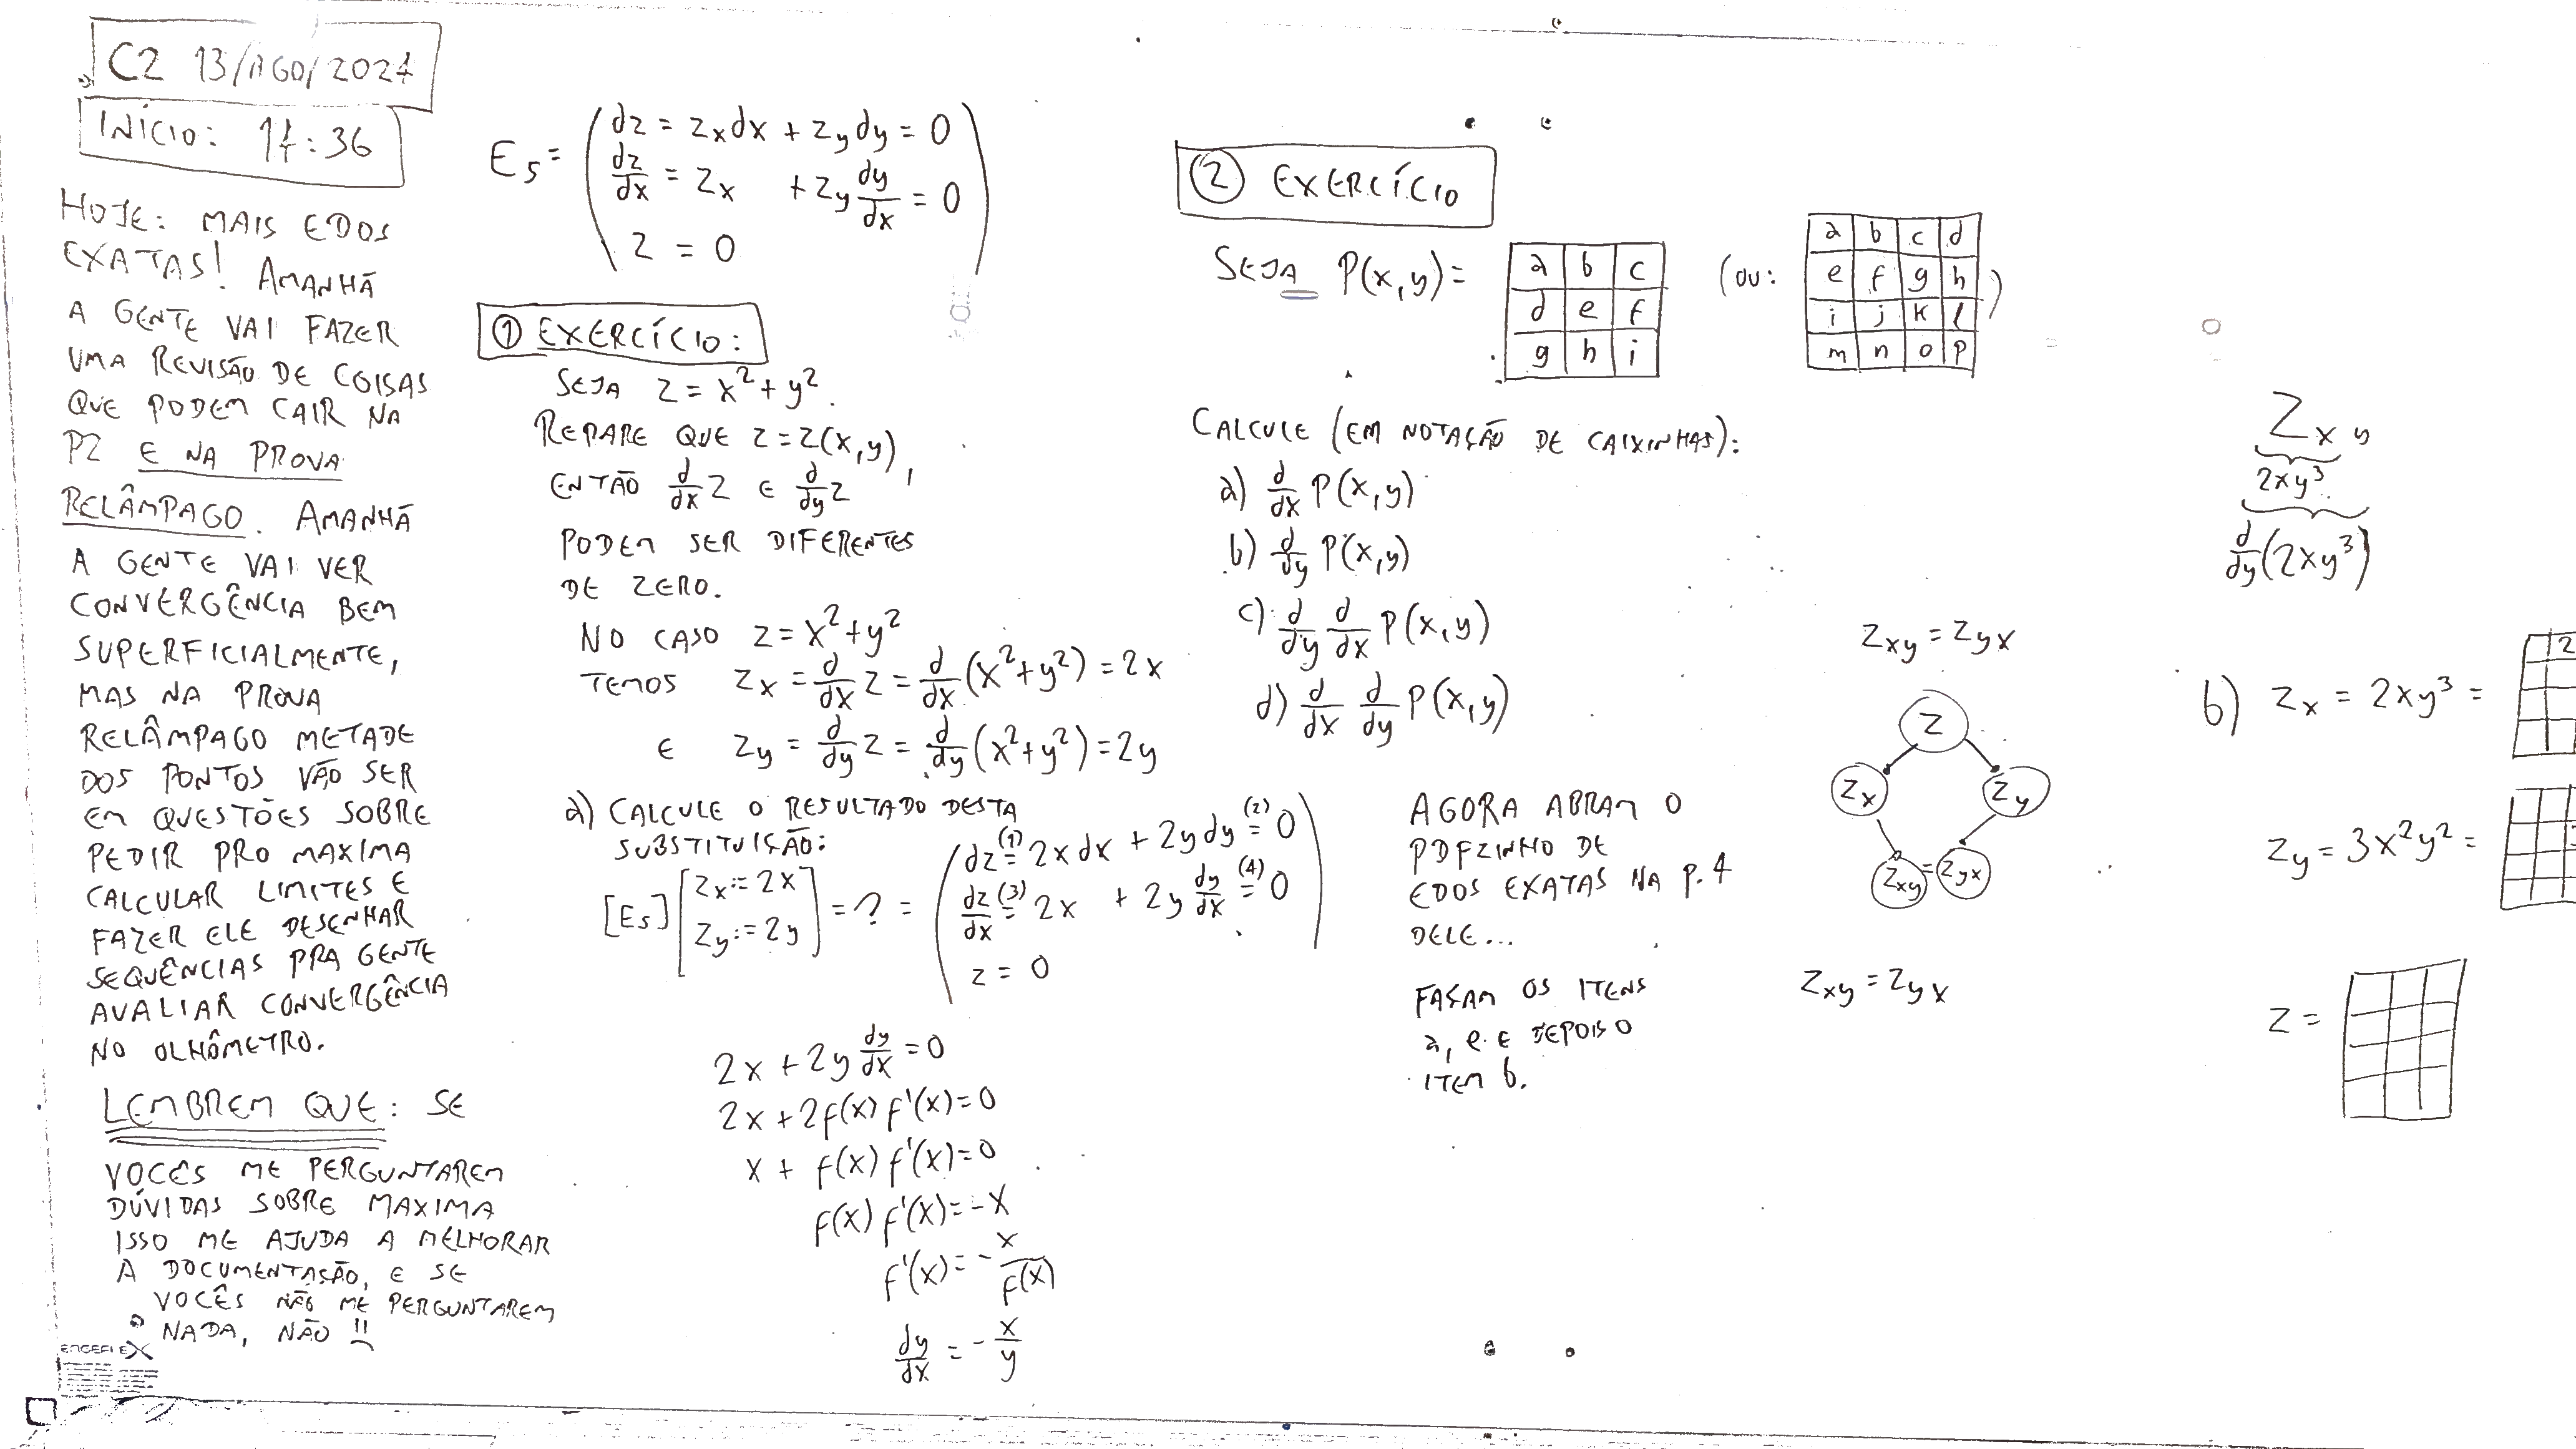 C2 13/AGO/2024
INÍCIO: 17:36
HOJE: MAIS EDOS
EXATAS! AMANHÃ
A GENTE VAI FAZER
UMA REVISÃO DE COISAS
QUE PODEM CAIR NA
P2 E NA PROVA
RELÂMPAGO. AMANHÃ
A GENTE VAI VER
CONVERGÊNCIA BEM
SUPERFICIALMENTE,
MAS NA PROVA
RELÂMPAGO METADE
DOS PONTOS VÃO SER
EM QUESTÕES SOBRE
PEDIR PRO MAXIMA
CALCULAR LIMITES E
FAZER ELE DESENHAR
SEQUÊNCIAS PRA GENTE
AVALIAR CONVERGÊNCIA
NO OLHÔMETRO.
LEMBREM QUE: SE
VOCÊS ME PERGUNTAREM
DÚVIDAS SOBRE MAXIMA
ISSO ME AJUDA A MELHORAR
A DOCUMENTAÇÃO, E SE
VOCÊS NÃO ME PERGUNTAREM
NADA, NÃO !!
E5 = ( dz = zx dx + zy dy = 0
dz/dx = zx + zy dy/dx = 0
z = 0 )
① EXERCÍCIO:
SEJA z = x² + y².
REPARE QUE z = z(x,y),
ENTÃO d/dx z E d/dy z
PODEM SER DIFERENTES
DE ZERO.
NO CASO z = x² + y²
TEMOS zx = d/dx z = d/dx (x² + y²) = 2x
E zy = d/dy z = d/dy (x² + y²) = 2y
a) CALCULE O RESULTADO DESTA
SUBSTITUIÇÃO:
[E5] [ zx := 2x
zy := 2y ] = ? = ( dz =(1) 2x dx + 2y dy =(2) 0
dz/dx =(3) 2x + 2y dy/dx =(4) 0
z = 0 )
2x + 2y dy/dx = 0
2x + 2f(x) f'(x) = 0
x + f(x) f'(x) = 0
f(x) f'(x) = -x
f'(x) = - x/f(x)
dy/dx = - x/y
② EXERCÍCIO
SEJA P(x,y) =
a b c
d e f
g h i
(OU:
a b c d
e f g h
i j k l
m n o p
)
CALCULE (EM NOTAÇÃO DE CAIXINHAS):
a) d/dx P(x,y)
b) d/dy P(x,y)
c) d/dy d/dx P(x,y)
d) d/dx d/dy P(x,y)
AGORA ABRAM O
PDFZINHO DE
EDOS EXATAS NA P. 4
DELE...
FAÇAM OS ITENS
a, e E DEPOIS O
ITEM b.
zxy = zyx
z
zx zy
zxy = zyx
zxy = zyx
zx y
2xy³
d/dy (2xy³)
b) zx = 2xy³ =
2
zy = 3x²y² =
z =
ENGEFLEX